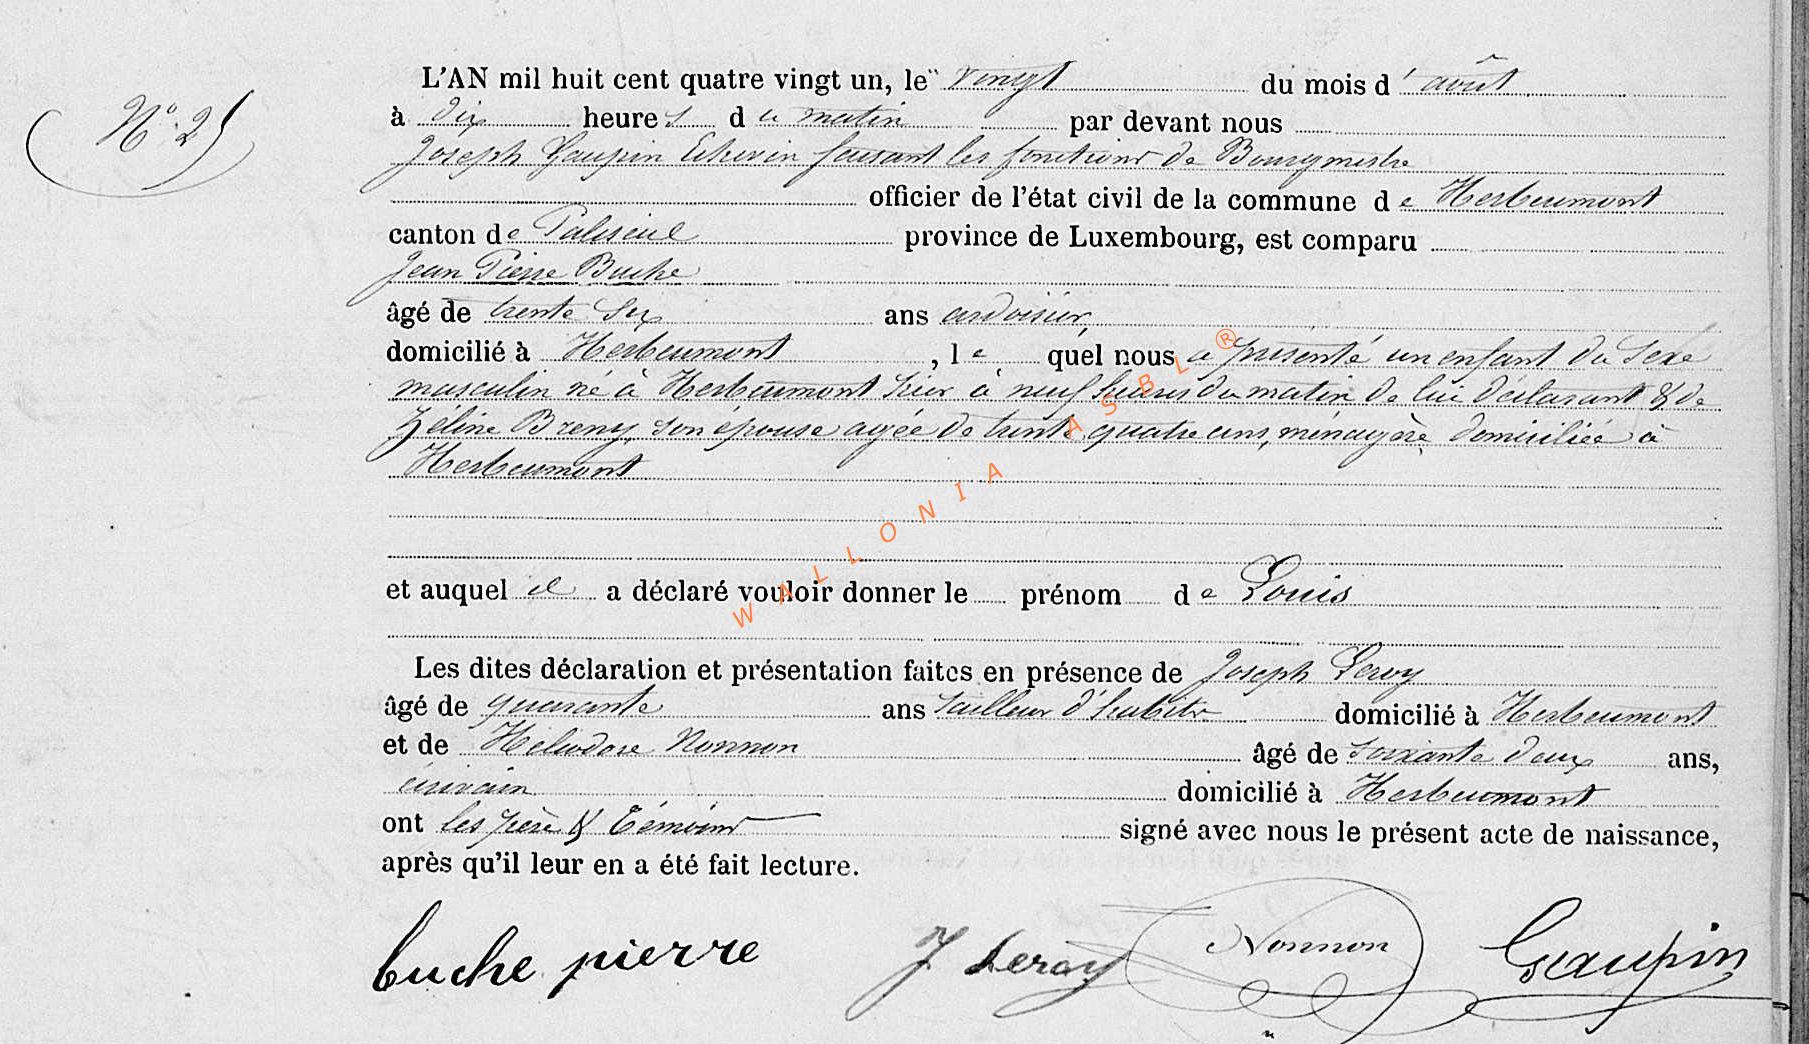 L'AN mil huit cent quatre vingt un, le vingt du mois d'août
N° 25
à dix heures du matin par devant nous
Joseph Gaupin Echevin faisant les fonctions de Bourgmestre
officier de l'état civil de la commune de Herbeumont
canton de Paliseul province de Luxembourg, est comparu
Jean Pierre Buche
âgé de trente six ans ardoisier,
domicilié à Herbeumont, le quel nous a présenté un enfant du sexe
masculin né à Herbeumont hier à neuf heures du matin de lui déclarant & de
Zéline Breny, son épouse agée de trente quatre ans, ménagère domiciliée à
Herbeumont
et auquel il a déclaré vouloir donner le prénom de Louis
Les dites déclaration et présentation faites en présence de Joseph Leroy
âgé de quarante ans tailleur d'habits domicilié à Herbeumont
et de Héliodore Nonnon âgé de soixante deux ans,
écrivain domicilié à Herbeumont
ont les père & témoins signé avec nous le présent acte de naissance,
après qu'il leur en a été fait lecture.
buche pierre J Leroy Nonnon Gaupin
WALLONIA ASBL ®